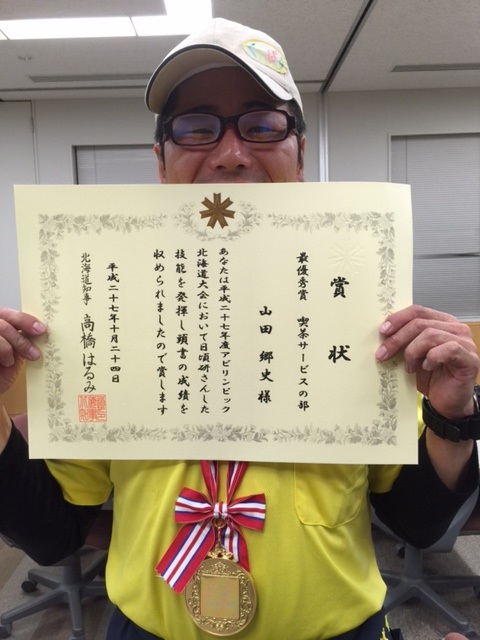 賞状
最優秀賞 喫茶サービスの部
山田 郷史 様
あなたは平成二十七年度アビリンピック
北海道大会において日頃研さんした
技能を発揮し頭書の成績を
収められましたので賞します
平成二十七年十月二十四日
北海道知事 高橋はるみ